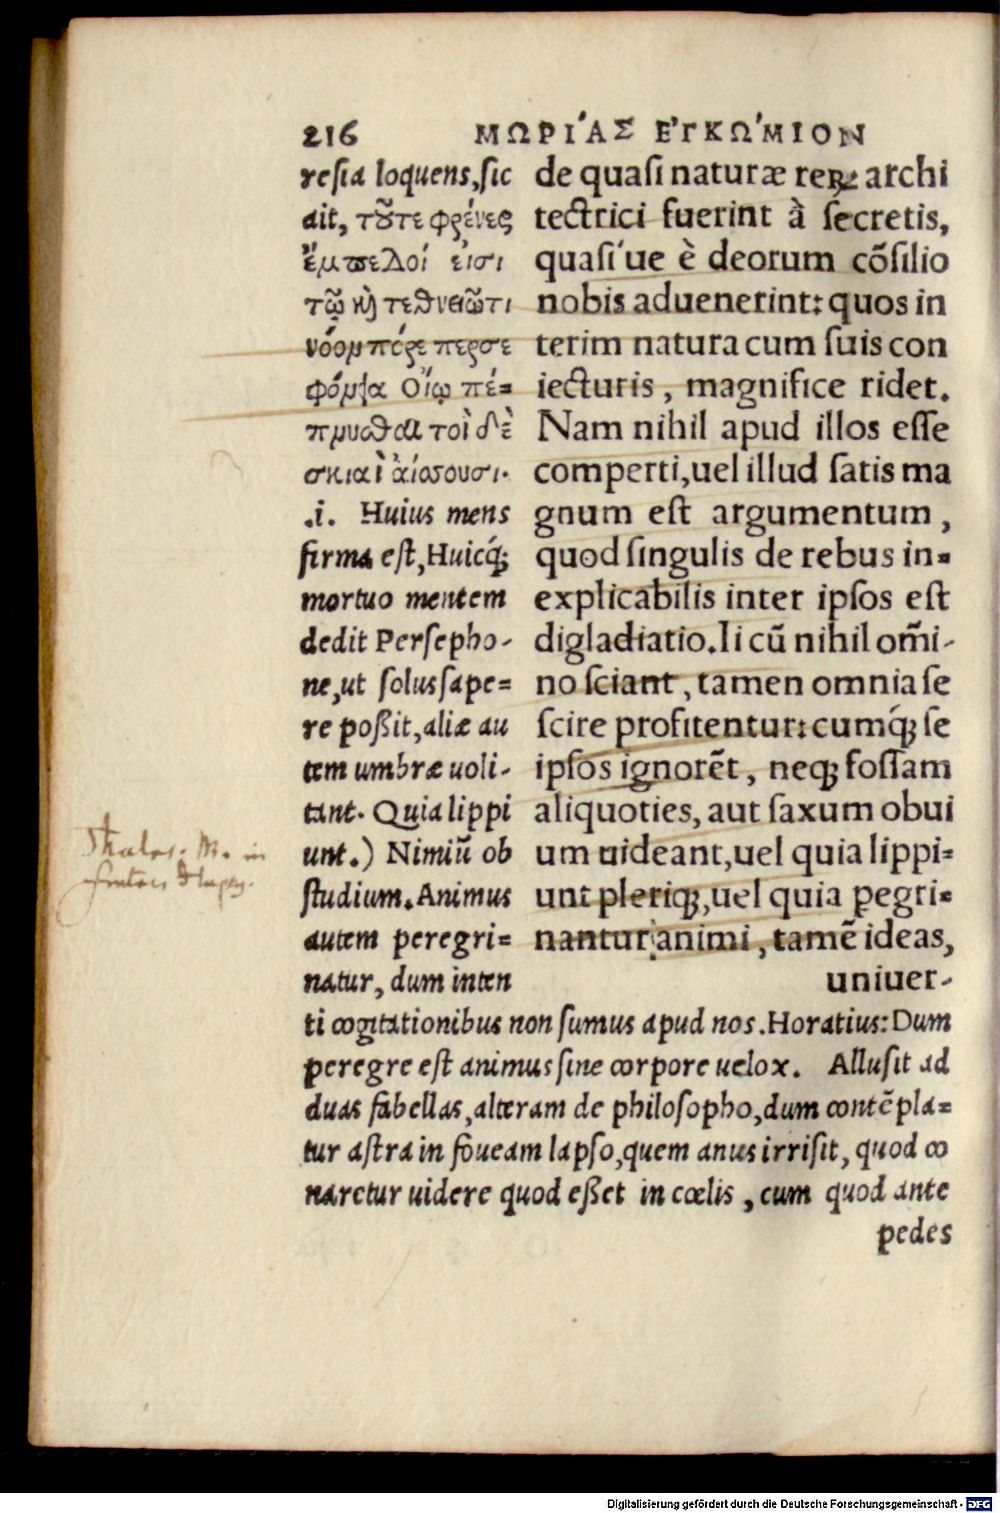 216 ΜΩΡΙ´ΑΣ ΕΓΚΩ´ΜΙΟΝ
resia loquens, sic
ait, τοῦτε φρένες
ἔμπεδοί εἰσι
τῷ καὶ τεθνειῶτι
νόομ πόρε περσε
φόμεια Οἴῳ πέ=
πμυσθαι τοὶ δὲ
σκιαὶ ἀίσσουσι.
.i. Huius mens
firma est, Huicq́;
mortuo mentem
dedit Persepho-
ne, ut solus sape=
re poßit, aliæ au
tem umbræ uoli-
tant. Quia lippi
unt.) Nimiũ ob
studium. Animus
autem peregri=
natur, dum inten
de quasi naturæ reꝝ archi
tectrici fuerint à secretis,
quasi úe è deorum cõsilio
nobis aduenerint: quos in
terim natura cum suis con
iecturis, magnifice ridet.
Nam nihil apud illos esse
comperti, uel illud satis ma
gnum est argumentum,
quod singulis de rebus in=
explicabilis inter ipsos est
digladiatio. Ii cũ nihil om̃i-
no sciant, tamen omnia se
scire profitentur: cumq́; se
ipsos ignorẽt, neq; fossam
aliquoties, aut saxum obui
um uideant, uel quia lippi=
unt pleriq;, uel quia pegri=
nantur animi, tamẽ ideas,
uniuer-
ti cogitationibus non sumus apud nos. Horatius: Dum
peregre est animus sine corpore uelox. Allusit ad
duas fabellas, alteram de philosopho, dum contẽpla=
tur astra in foueam lapso, quem anus irrisit, quod co
naretur uidere quod eßet in cœlis, cum quod ante
pedes
Thales. M. in
Digitalisierung gefördert durch die Deutsche Forschungsgemeinschaft - DFG